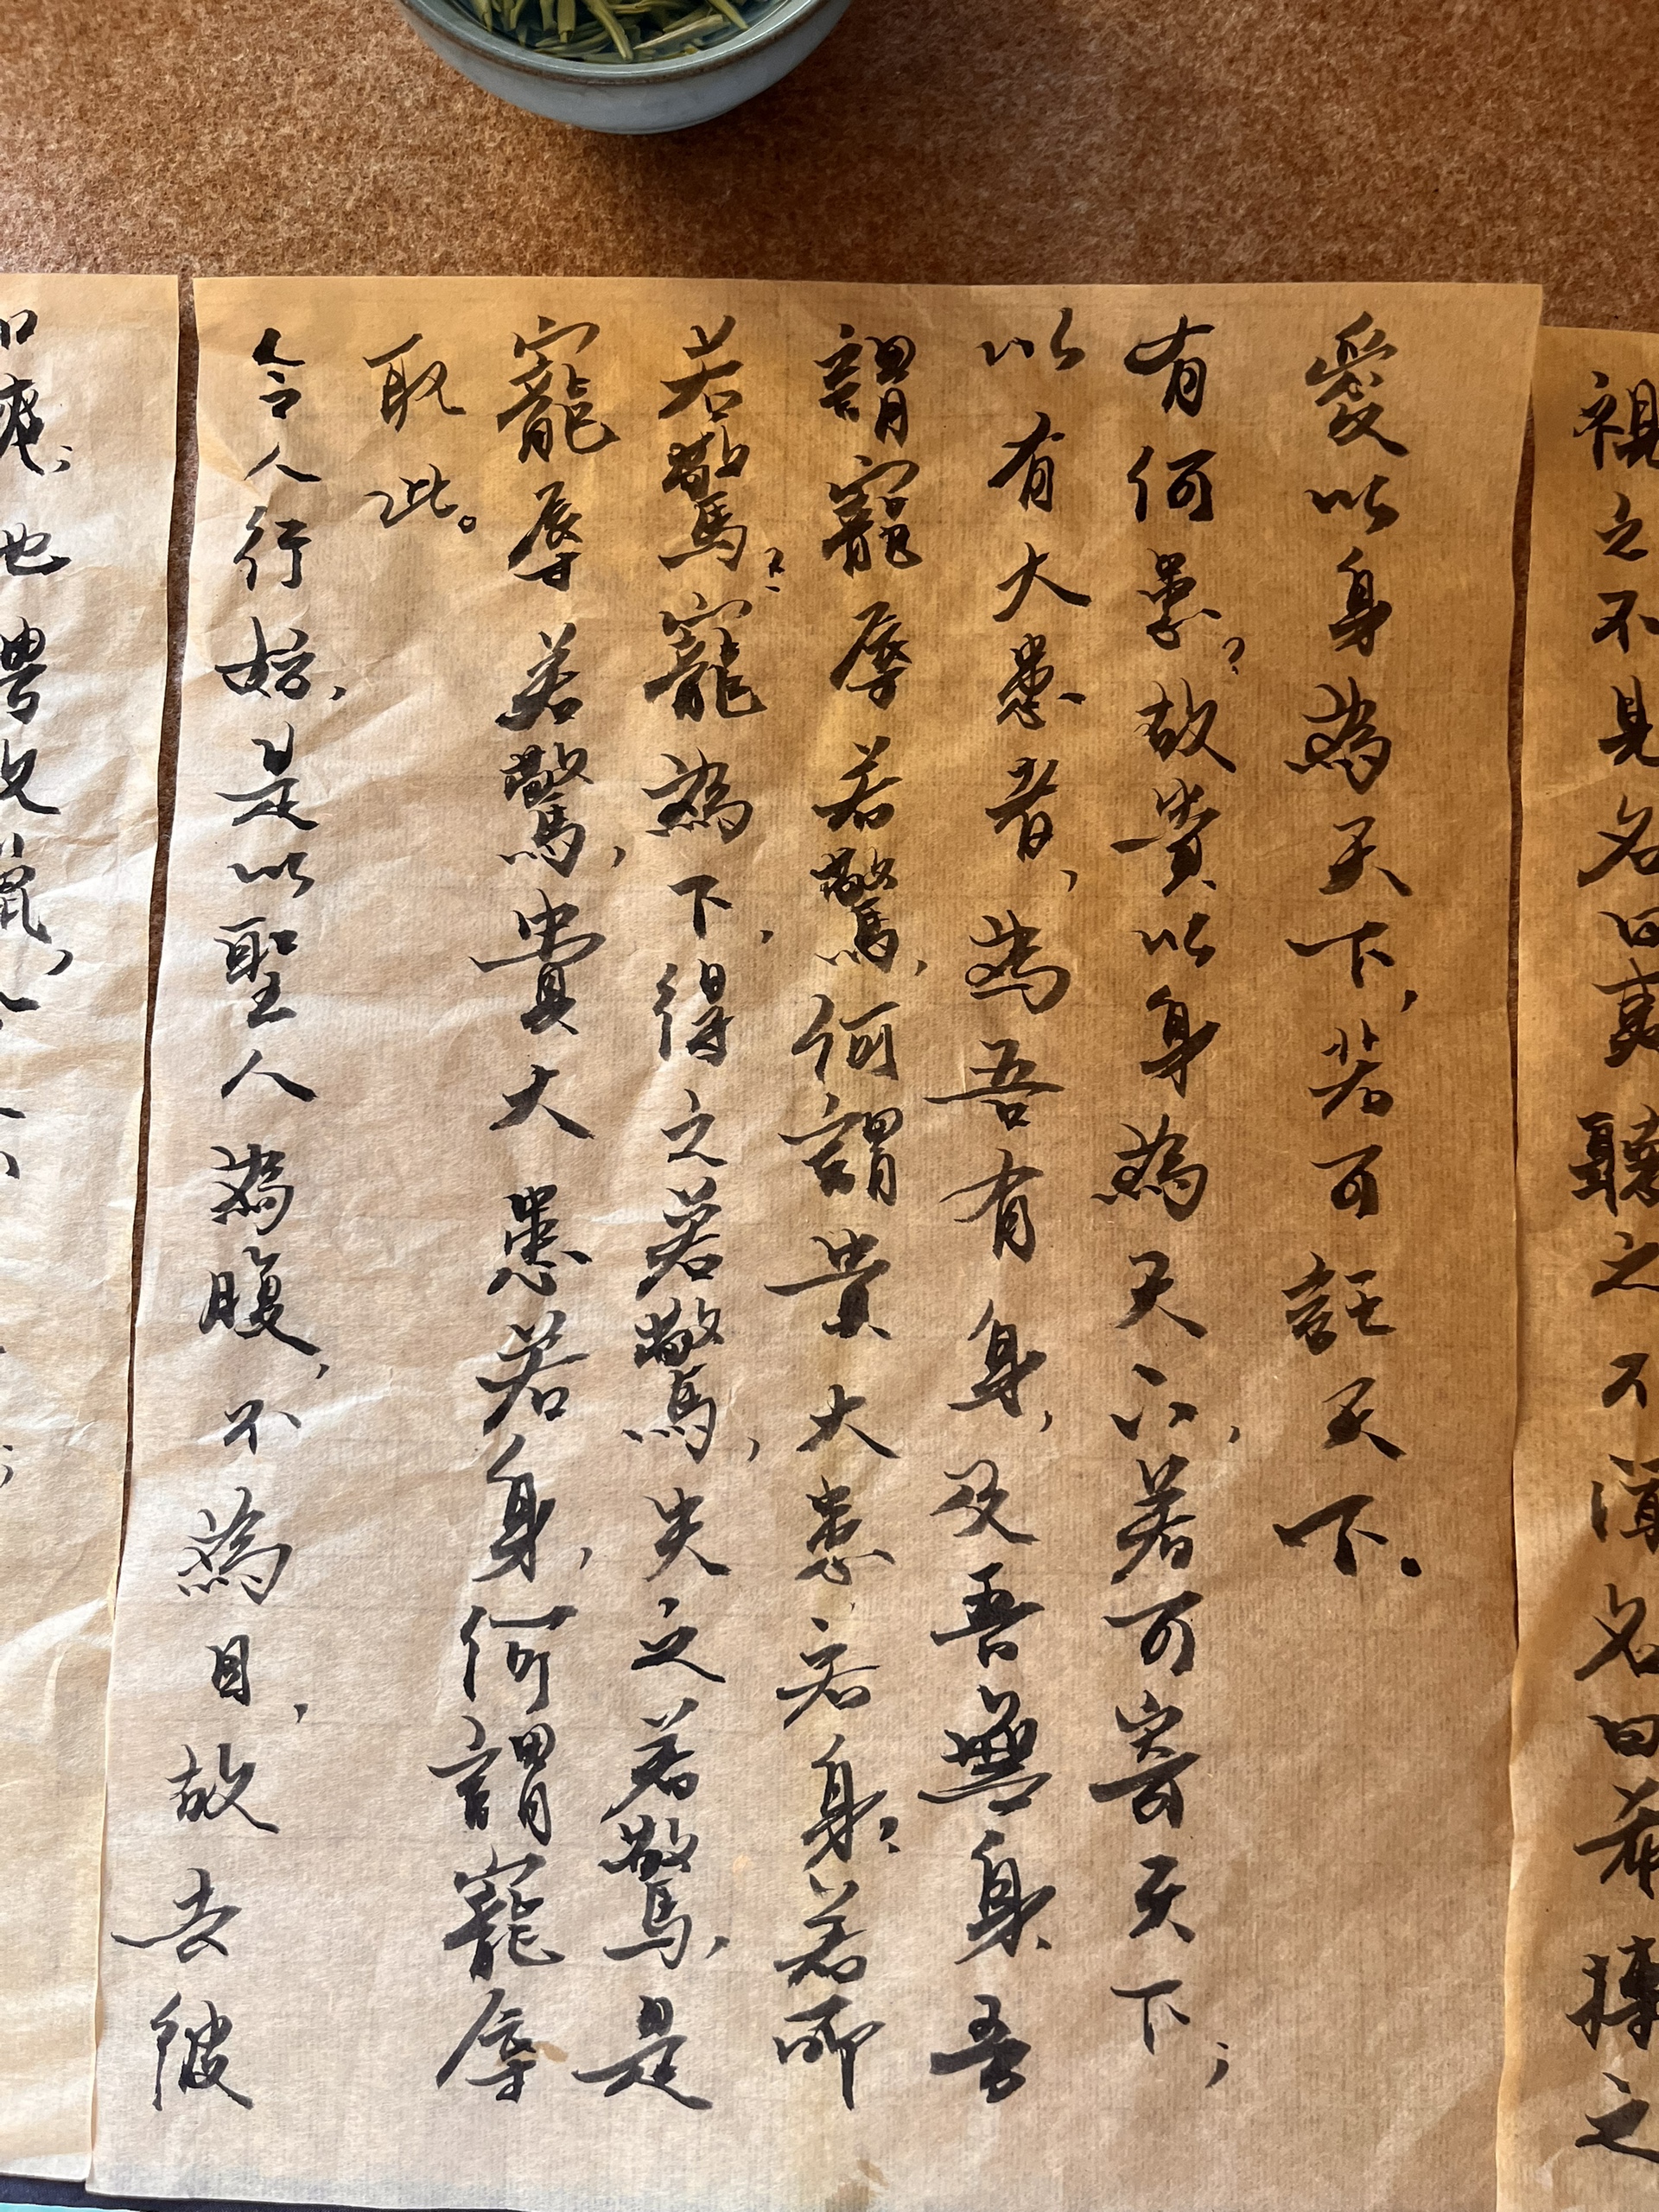 令人行妨,是以聖人為腹,不為目,故去彼
取此。
寵辱若驚,貴大患若身,何謂寵辱
若驚?寵為下,得之若驚,失之若驚,是
謂寵辱若驚,何謂貴大患若身?若所
以有大患者,為吾有身,及吾無身,吾
有何患?故貴以身為天下,若可寄天下;
愛以身為天下,若可託天下。
視之不見名曰夷聽之不聞名曰希搏之